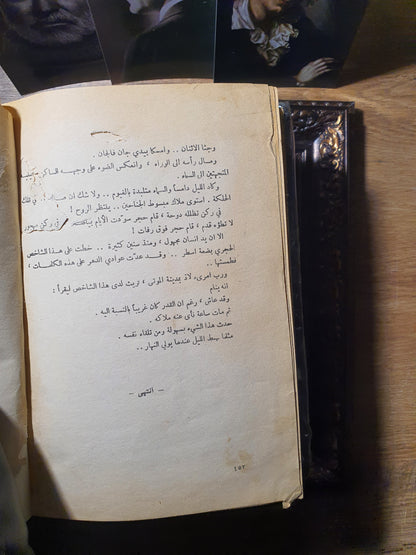 وجثا الاثنان .. وامسكا بيدي جان فالجان .
ومال رأسه الى الوراء ، وانعكس الضوء على وجهه الساكن وعينيه
المتجهتين الى السماء .
وكان الليل دامساً والسماء متلبدة بالغيوم .. ولا شك ان في تلك
الحلكة . استوى ملاك مبسوط الجناحين .. ينتظر الروح !
في ركن تظلله دوحة ، قام حجر سوّدت الأيام بياضه في ركن
لا تطؤه قدم ، قام حجر فوق رفات !
الا ان يد انسان مجهول ، ومنذ سنين كثيرة .. خطت على هذا الشاخص
الحجري بضعة اسطر .. وقد عدت عوادي الدهر على هذه الكلمات ،
فطمستها ..
ورب امرىء لاذ بمدينة الموتى ، تريث لدى هذا الشاخص ليقرأ :
انه ينام
وقد عاش ، رغم ان القدر كان غريباً بالنسبة اليه .
ثم مات ساعة نأى عنه ملاكه .
حدث هذا الشيء بسهولة ومن تلقاء نفسه .
مثلما يهبط الليل عندما يولي النهار ..
- انتهى -
١٥٢